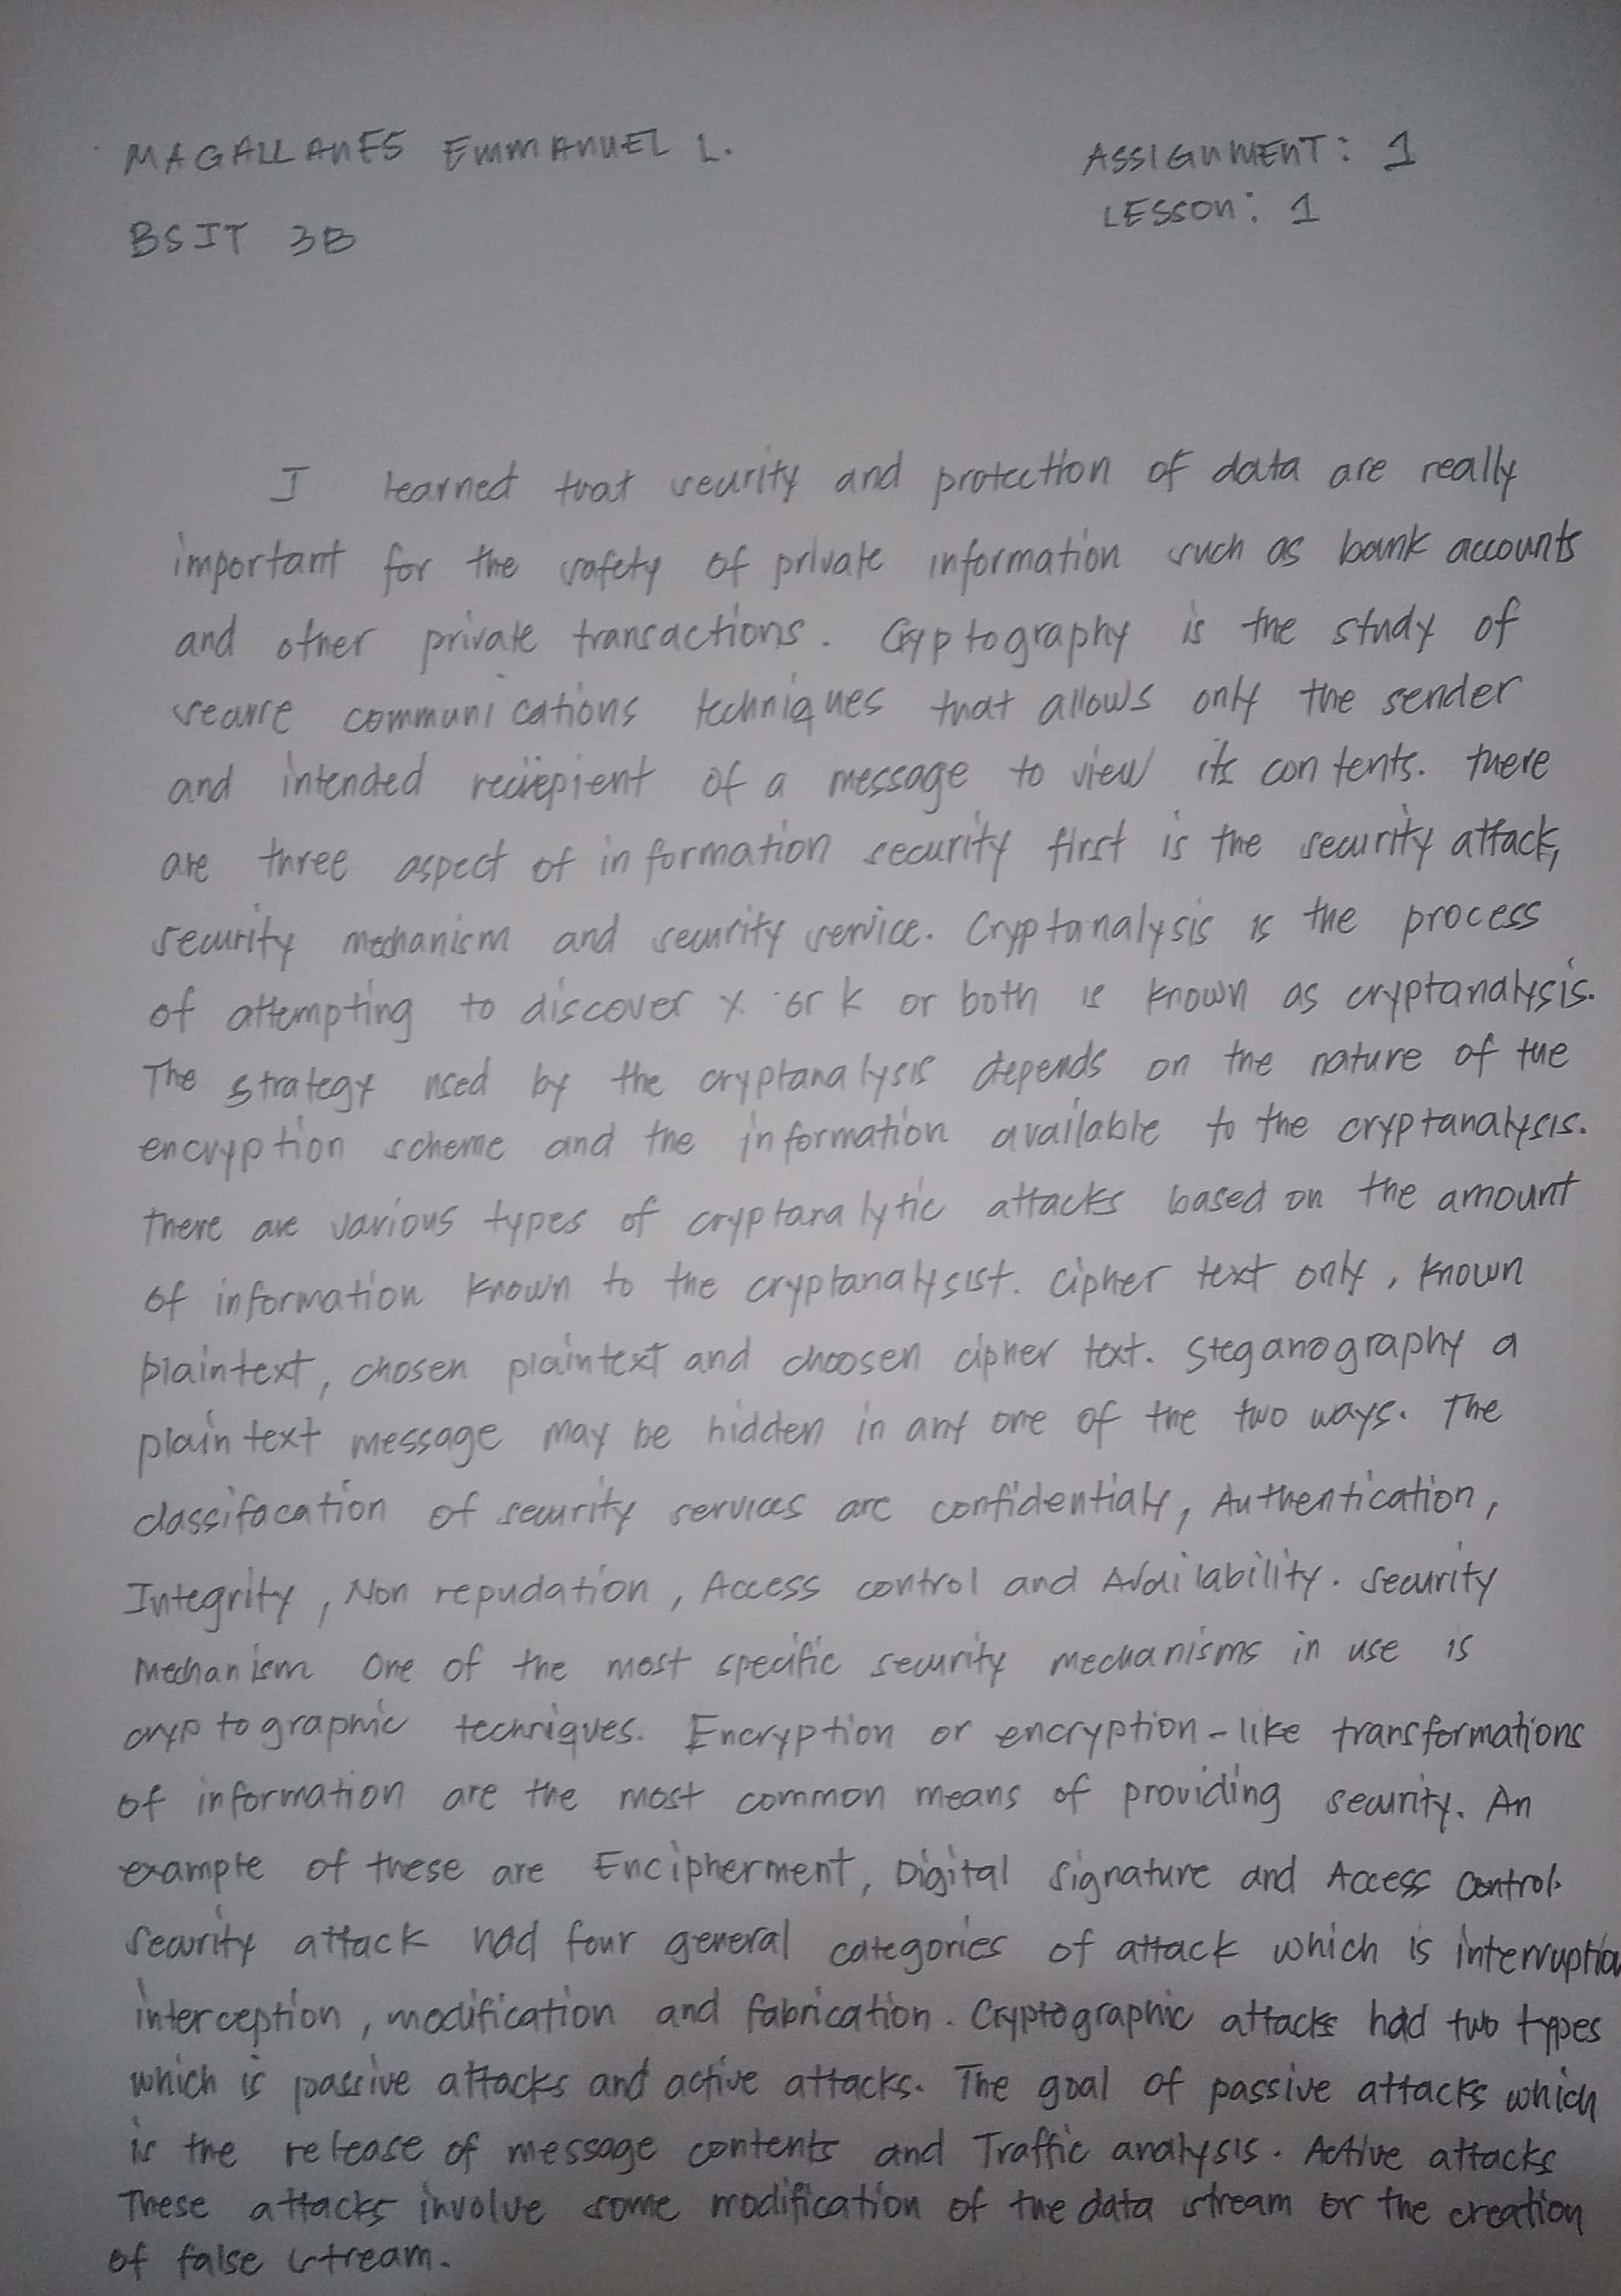 MAGALLANES EMMANUEL L.
ASSIGNMENT: 1
LESSON: 1
BSIT 3B
I learned that security and protection of data are really
important for the safety of private information such as bank accounts
and other private transactions. Cryptography is the study of
secure communications techniques that allows only the sender
and intended reciepient of a message to view its contents. there
are three aspect of information security first is the security attack,
security mechanism and security service. Cryptanalysis is the process
of attempting to discover X or K or both is known as cryptanalysis.
The strategy used by the cryptanalysis depends on the nature of the
encryption scheme and the information available to the cryptanalysis.
there are various types of cryptanalytic attacks based on the amount
of information known to the cryptanalysist. Cipher text only, known
plaintext, chosen plaintext and choosen cipher text. Steganography a
plain text message may be hidden in any one of the two ways. The
classifacation of security services are confidentialy, Authentication,
Integrity, Non repudation, Access control and Availability. Security
mechanism One of the most specific security mechanisms in use is
cryptographic techniques. Encryption or encryption-like transformations
of information are the most common means of providing security. An
example of these are Encipherment, Digital Signature and Access Control.
Security attack had four general categories of attack which is interruption
interception, modification and fabrication. Cryptographic attacks had two types
which is passive attacks and active attacks. The goal of passive attacks which
is the release of message contents and Traffic analysis. Active attacks
These attacks involve some modification of the data stream or the creation
of false stream.